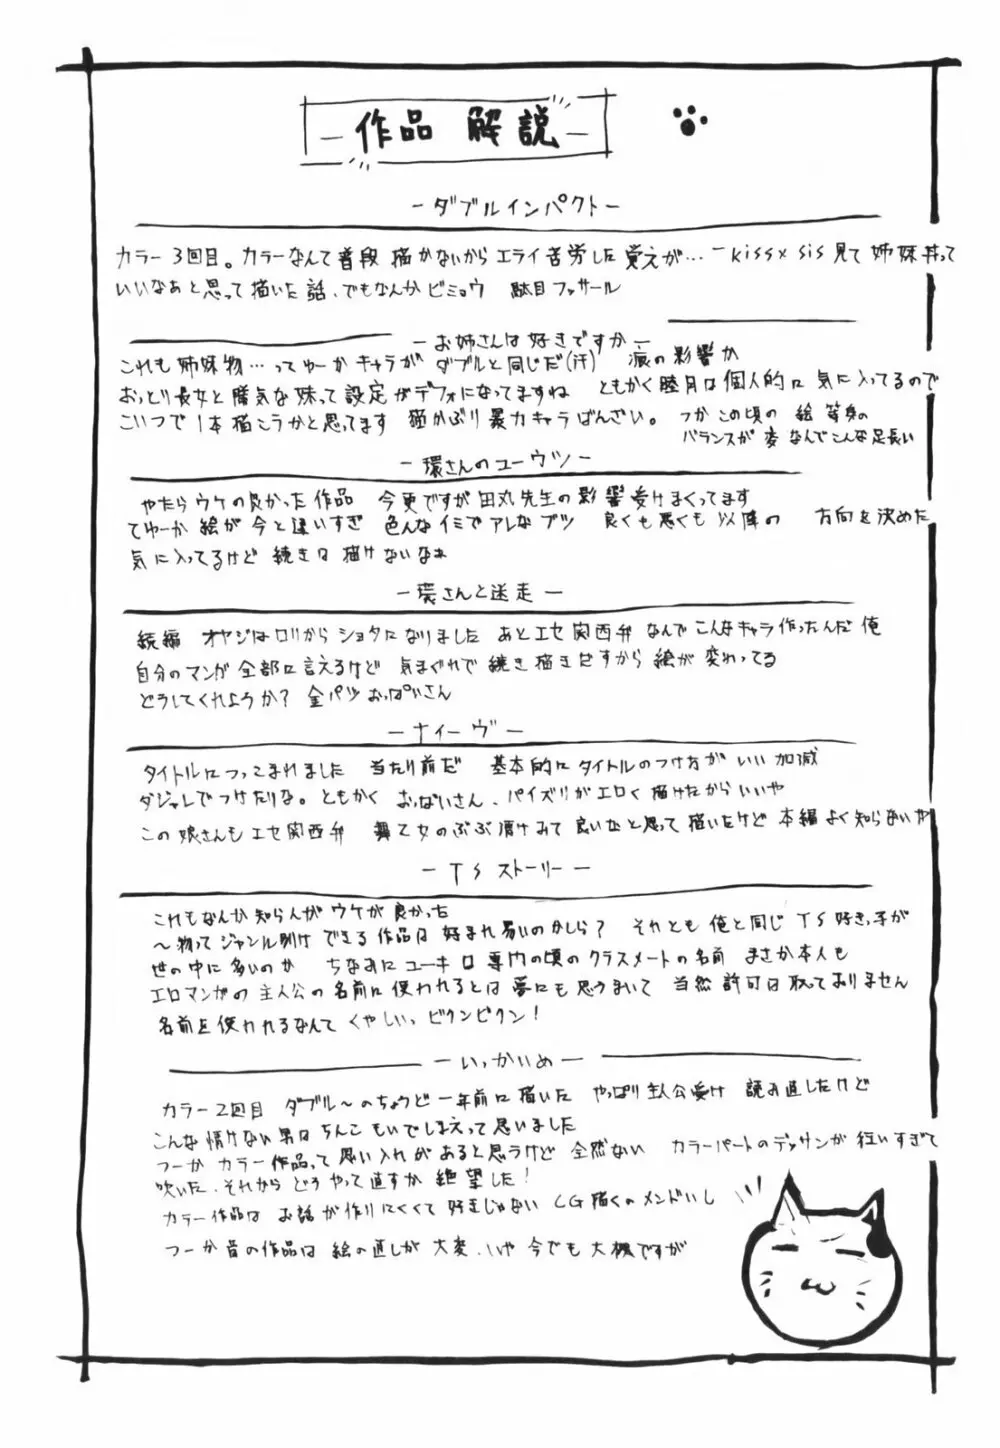 作品 解説
－ダブルインパクト－
カラー3回目。カラーなんて普段描かないからエライ苦労した覚えが… kiss×sis見て姉妹丼って
いいなぁと思って描いた話、でもなんかビミョウ 駄目ファサール
－お姉さんは好きですか－
これも姉妹物…ってゆーかキャラがダブルと同じだ(汗) 痕の影響か
おっとり長女と勝気な妹って設定がデフォになってますね ともかく睦月は個人的に気に入ってるので
こいつで1本描こうかと思ってます 猫かぶり暴力キャラばんざい。 つかこの頃の絵 等身の
バランスが変 なんでこんな足長い
－環さんのユーウツ－
やたらウケの良かった作品 今更ですが田丸先生の影響受けまくってます
てゆーか絵が今と違いすぎ 色んなイミでアレなブツ 良くも悪くも以降の 方向を決めた
気に入ってるけど続きは描けないなぁ
－環さんと迷走－
続編 オヤジはロリからショタになりました あとエセ関西弁 なんでこんなキャラ作ったんだ俺
自分のマンガ全部に言えるけど 気まぐれで続き描きだすから絵が変わってる
どうしてくれようか? 金パツおっぱいさん
－ナイーヴ－
タイトルにつっこまれました 当たり前だ 基本的にタイトルのつけ方がいい加減
ダジャレでつけたりな。ともかくおっぱいさん、パイズリがエロく描けたからいいや
この娘さんもエセ関西弁 舞乙女のぶぶ漬けみて良いなと思って描いたけど本編よく知らないや
－TSストーリー－
これもなんか知らんがウケが良かった
～物ってジャンル別けできる作品は好まれ易いのかしら? それとも俺と同じTS好きっ手が
世の中に多いのか ちなみにユーキは専門の頃のクラスメートの名前 まさか本人も
エロマンガの主人公の名前に使われるとは夢にも思うまいて 当然許可は取っておりません
名前を使われるなんて くやしいっ ビクンビクン!
－いっかいめ－
カラー2回目 ダブル～のちょうど一年前に描いた やっぱり主人公受け 読み直したけど
こんな情けない男はちんこもいでしまえって思いました
つーかカラー作品って思い入れがあると思うけど全然ない カラーパートのデッサンが狂いすぎて
吹いた、それからどうやって直すか絶望した!
カラー作品はお話が作りにくくて好きじゃない CG描くのメンドいし
つーか昔の作品は絵の直しが大変、いや今でも大概ですが